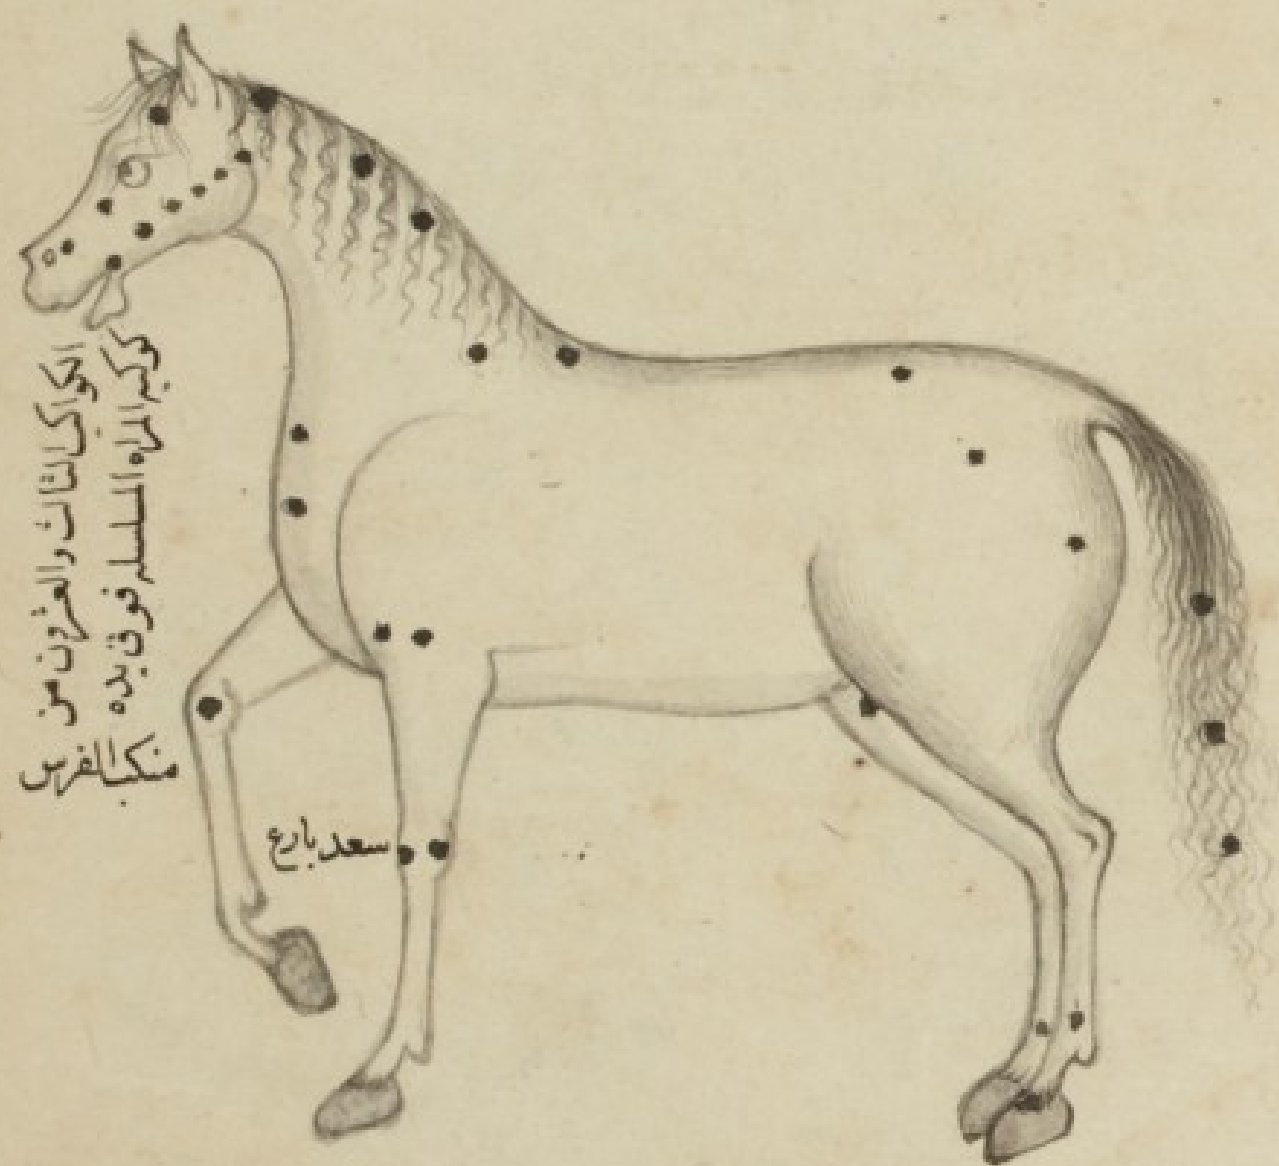 الكواكب الثالث والعشرون من
كوكبه المراه المسلسله فوق يده
منكب الفرس
سعد بارع